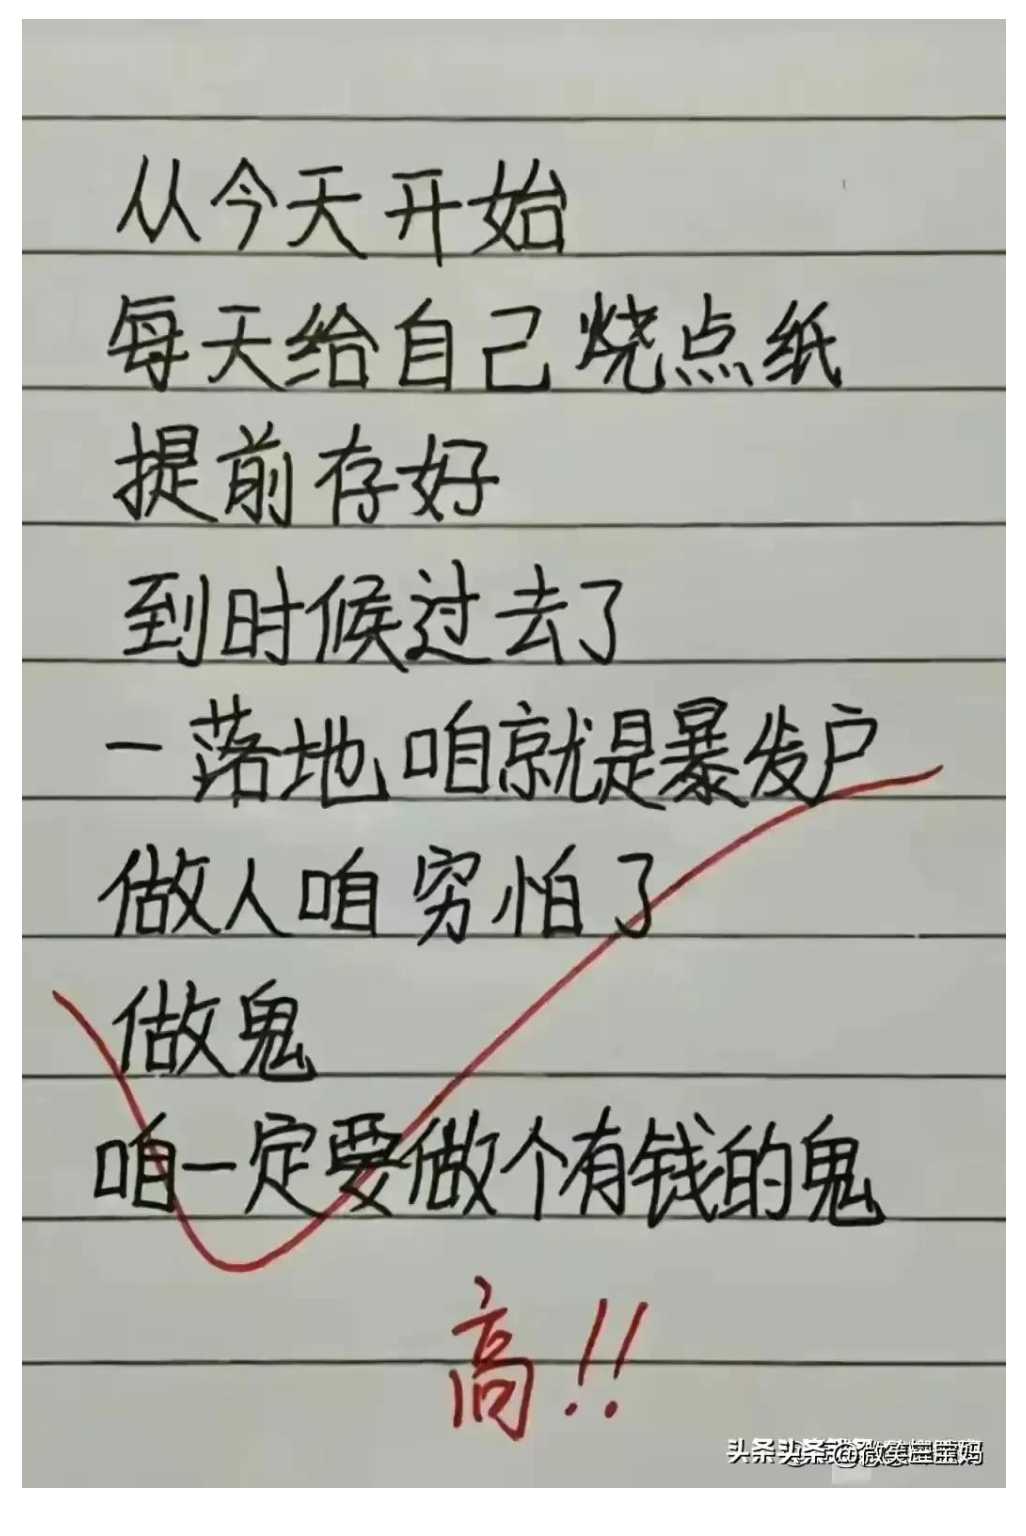 从今天开始
每天给自己烧点纸
提前存好
到时候过去了
一落地咱就是暴发户
做人咱穷怕了
做鬼
咱一定要做个有钱的鬼
高!!
头条 @微笑